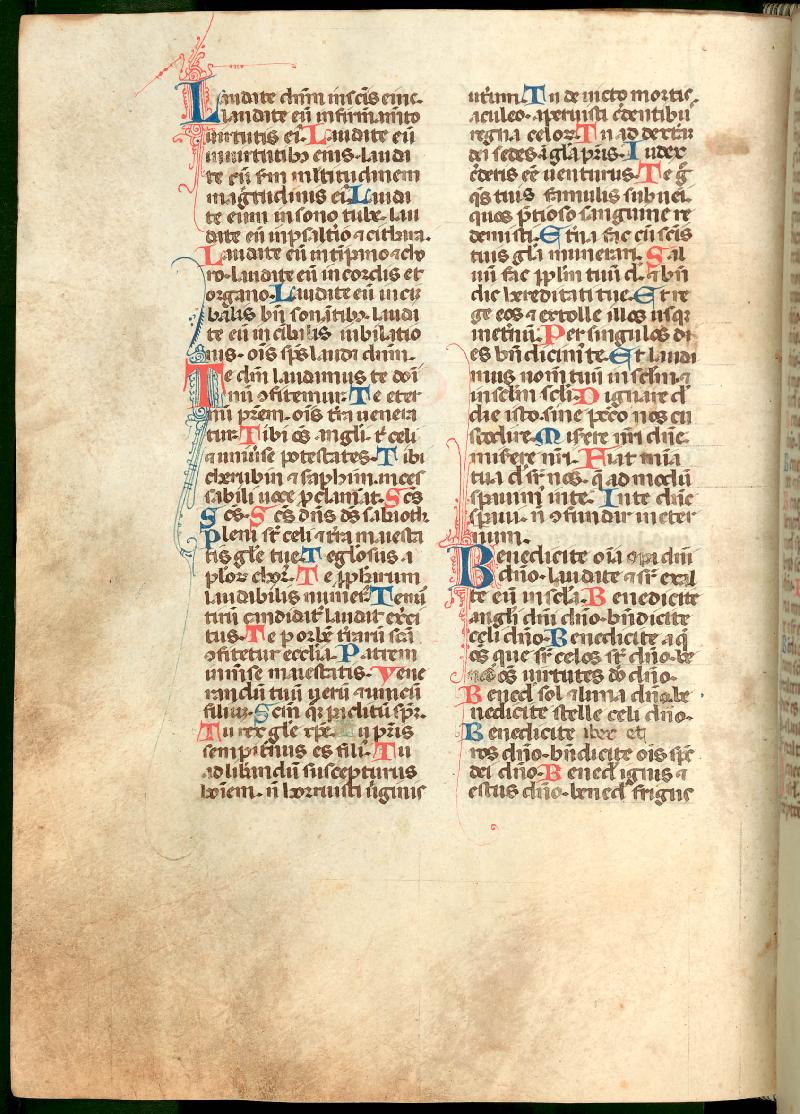 Laudate dnm in scis eius.
laudate eu in firmamto
uirtutis ei. Laudate eu
in uirtutibȝ eius. laudi
te eu sm multitudinem
magitudinis ei. Laudi
te eum in sono tube. lau
dite eu in psaltio ⁊ cithara.
Laudate eu in timpano ⁊ cho
ro. laudate eu in cordis et
organo. Laudate eu in cim
balis bn sonatibȝ. laudi
te eu in cibilis iubilatio
nis. ois sps laudi dnm.
Te dm laudamus te doi
nu ꝯfitemur. Te eter
nu prem. ois tra uenera
tur. Tibi os angli. t celi
⁊ uniuise potestates. Tibi
cherubin ⁊ saphim. inces
sabili uoce pclamat. Scs
Scs. Scs dns ds sabaoth
Pleni st celi ⁊ tra maiesta
tis gle tue. Te glosus a
ploꝝ chor. Te pphetarum
laudibilis numer. Te mu
tiru candidat laudat exci
tus. Te p orbe tirau sca
ꝯfitetur ecclia. Patrem
inmse maiestatis. Vene
randu tuu ueru ⁊ unicu
filiu. Scm qr paclitu spr.
Tu rex gle xpe. Tu pris
sempitnus es fili. Tu
ad libindu suscepturus
hoiem. n horruisti uginis
utum. Tu deuicto mortis
aculeo. aperuisti cdentibu
regna celoꝝ. Tu ad dextra
dei sedes i gla pris. Iudex
cderis ee uenturus. Te g
qs tuis famulis subuei.
quos ptioso sanguine re
demisti. Etna fac cu scis
tuis gla munerari. Sal
uu fac pplm tuu d. ⁊ bn
dic hereditati tue. Et re
ge eos ⁊ extolle illos usqȝ
inetnu. Per singulos di
es bn dicim te. Et laudi
mus nom tuu in sclm. ⁊
in sclm scli. Dignare d
die isto. sine pcco nos cu
stodire. Misere nri dne.
misere nri. Fiat mia
tua d sr nos. q ad modu
spauim i te. In te dne
spaui. n ꝯfundar in eter
num.
Benedicite oia opa dni
dno. laudate ⁊ sr exal
te eu in scla. Benedicite
angli dni dno. bndicite
celi dno. Benedicite aq
os que sr celos st dno. be
os uirtutes do dno.
Bened sol ⁊ luna dno. be
nedicite stelle celi dno.
Benedicite iber et
ros dno. bndicite ois spc
dei dno. Bened ignis ⁊
estus dno. bened frigus